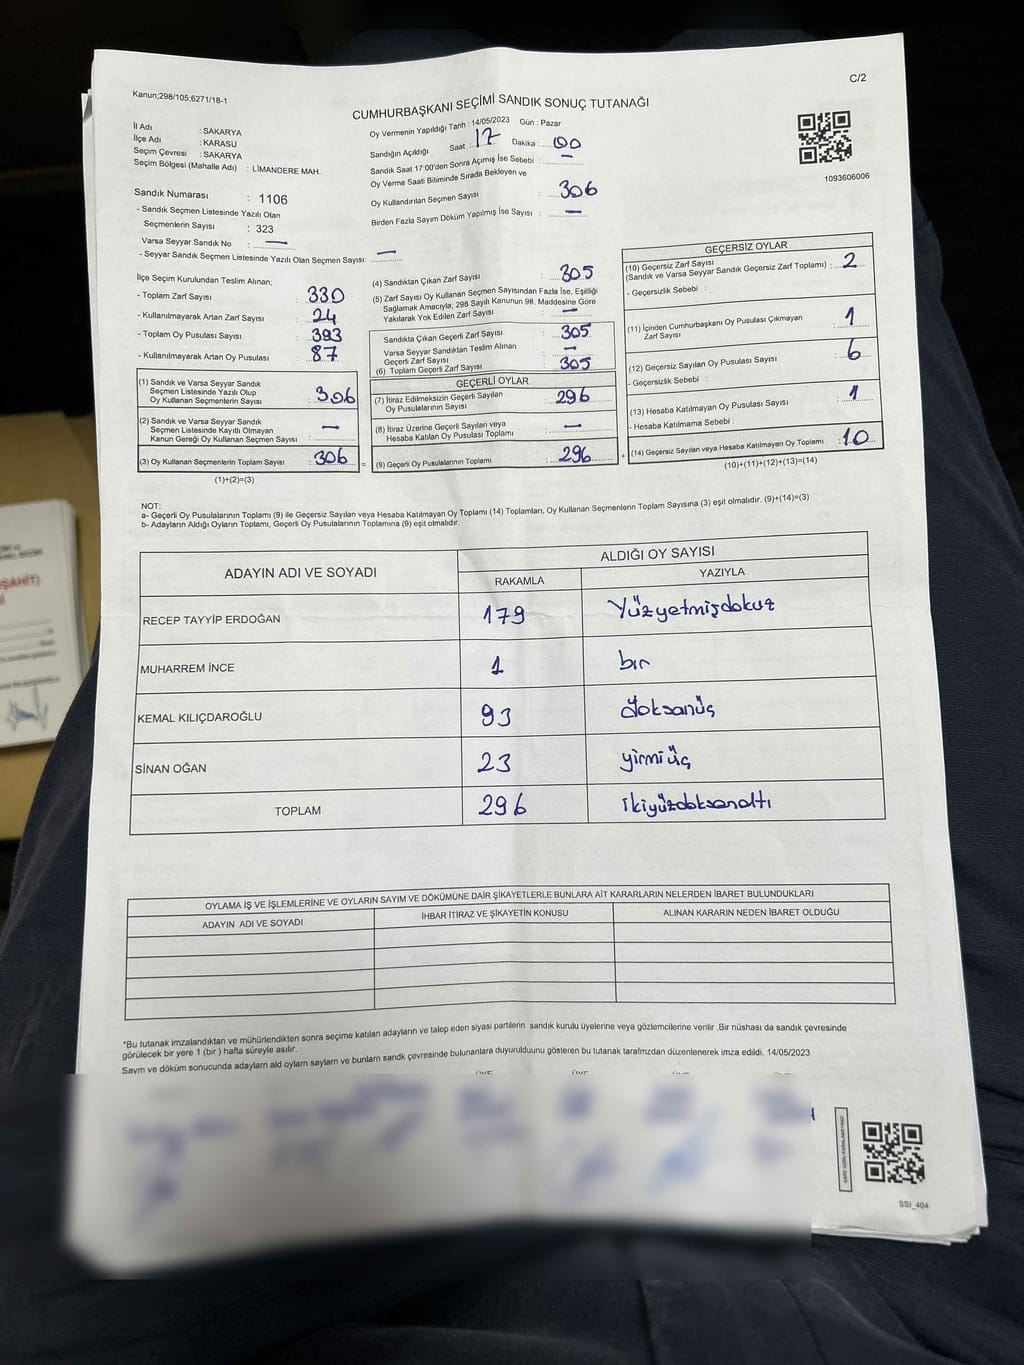 Kanun;298/105;6271/18-1
C/2
CUMHURBAŞKANI SEÇİMİ SANDIK SONUÇ TUTANAĞI
İl Adı : SAKARYA
İlçe Adı : KARASU
Seçim Çevresi : SAKARYA
Seçim Bölgesi (Mahalle Adı) : LİMANDERE MAH.
Oy Vermenin Yapıldığı Tarih : 14/05/2023 Gün : Pazar
Sandığın Açıldığı Saat : 17 Dakika : 00
Sandık Saat 17:00'den Sonra Açımış İse Sebebi : —
Oy Verme Saati Bitiminde Sırada Bekleyen ve
Oy Kullandırılan Seçmen Sayısı : 306
Birden Fazla Sayım Döküm Yapılmış İse Sayısı : —
1093606006
Sandık Numarası : 1106
- Sandık Seçmen Listesinde Yazılı Olan
Seçmenlerin Sayısı : 323
Varsa Seyyar Sandık No : —
- Seyyar Sandık Seçmen Listesinde Yazılı Olan Seçmen Sayısı: —
İlçe Seçim Kurulundan Teslim Alınan;
- Toplam Zarf Sayısı : 330
- Kullanılmayarak Artan Zarf Sayısı : 24
- Toplam Oy Pusulası Sayısı : 393
- Kullanılmayarak Artan Oy Pusulası : 87
(1) Sandık ve Varsa Seyyar Sandık
Seçmen Listesinde Yazılı Olup
Oy Kullanan Seçmenlerin Sayısı : 306
(2) Sandık ve Varsa Seyyar Sandık
Seçmen Listesinde Kayıtlı Olmayan
Kanun Gereği Oy Kullanan Seçmen Sayısı : —
(3) Oy Kullanan Seçmenlerin Toplam Sayısı : 306
(1)+(2)=(3)
(4) Sandıktan Çıkan Zarf Sayısı : 305
(5) Zarf Sayısı Oy Kullanan Seçmen Sayısından Fazla İse, Eşitliği
Sağlamak Amacıyla; 298 Sayılı Kanunun 98. Maddesine Göre
Yakılarak Yok Edilen Zarf Sayısı : —
Sandıkta Çıkan Geçerli Zarf Sayısı : 305
Varsa Seyyar Sandıktan Teslim Alınan
Geçerli Zarf Sayısı : —
(6) Toplam Geçerli Zarf Sayısı : 305
GEÇERLİ OYLAR
(7) İtiraz Edilmeksizin Geçerli Sayılan
Oy Pusulalarının Sayısı : 296
(8) İtiraz Üzerine Geçerli Sayılan veya
Hesaba Katılan Oy Pusulası Toplamı : —
= (9) Geçerli Oy Pusulalarının Toplamı : 296
GEÇERSİZ OYLAR
(10) Geçersiz Zarf Sayısı
(Sandık ve Varsa Seyyar Sandık Geçersiz Zarf Toplamı) : 2
- Geçersizlik Sebebi :
(11) İçinden Cumhurbaşkanı Oy Pusulası Çıkmayan
Zarf Sayısı : 1
(12) Geçersiz Sayılan Oy Pusulası Sayısı : 6
- Geçersizlik Sebebi :
(13) Hesaba Katılmayan Oy Pusulası Sayısı : 1
- Hesaba Katılmama Sebebi :
+ (14) Geçersiz Sayılan veya Hesaba Katılmayan Oy Toplamı : 10
(10)+(11)+(12)+(13)=(14)
NOT:
a- Geçerli Oy Pusulalarının Toplamı (9) ile Geçersiz Sayılan veya Hesaba Katılmayan Oy Toplamı (14) Toplamları, Oy Kullanan Seçmenlerin Toplam Sayısına (3) eşit olmalıdır. (9)+(14)=(3)
b- Adayların Aldığı Oyların Toplamı, Geçerli Oy Pusulalarının Toplamına (9) eşit olmalıdır.
ADAYIN ADI VE SOYADI ALDIĞI OY SAYISI
RAKAMLA YAZIYLA
RECEP TAYYİP ERDOĞAN 179 Yüzyetmişdokuz
MUHARREM İNCE 1 bir
KEMAL KILIÇDAROĞLU 93 doksanüç
SİNAN OĞAN 23 yirmi üç
TOPLAM 296 ikiyüzdoksanaltı
OYLAMA İŞ VE İŞLEMLERİNE VE OYLARIN SAYIM VE DÖKÜMÜNE DAİR ŞİKAYETLERLE BUNLARA AİT KARARLARIN NELERDEN İBARET BULUNDUKLARI
ADAYIN ADI VE SOYADI İHBAR İTİRAZ VE ŞİKAYETİN KONUSU ALINAN KARARIN NEDEN İBARET OLDUĞU
*Bu tutanak imzalandıktan ve mühürlendikten sonra seçime katılan adayların ve talep eden siyasi partilerin sandık kurulu üyelerine veya gözlemcilerine verilir .Bir nüshası da sandık çevresinde
görülecek bir yere 1 (bir ) hafta süreyle asılır.
Sayım ve döküm sonucunda adayların ald oyların sayların ve bunların sandk çevresinde bulunanlara duyurulduunu gösteren bu tutanak tarafmzdan düzenlenerek imza edildi. 14/05/2023
SSI_404
ŞAHİT)